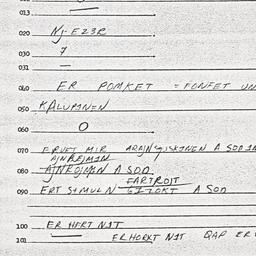 013
020 Nj-EZ3R
030 7
031 —
040 ER POMKET = FONFET UN
050 KALUPINEN
060 O
070 ERVET MIR A SODIN
AJNREJMIN
080 AJNROJMIN A SOD.
FARTROJT
090 ERT SIMULN GIZOKT A SOD
100 ER HERT NIT
101 ER HORKT NIT QAP ER